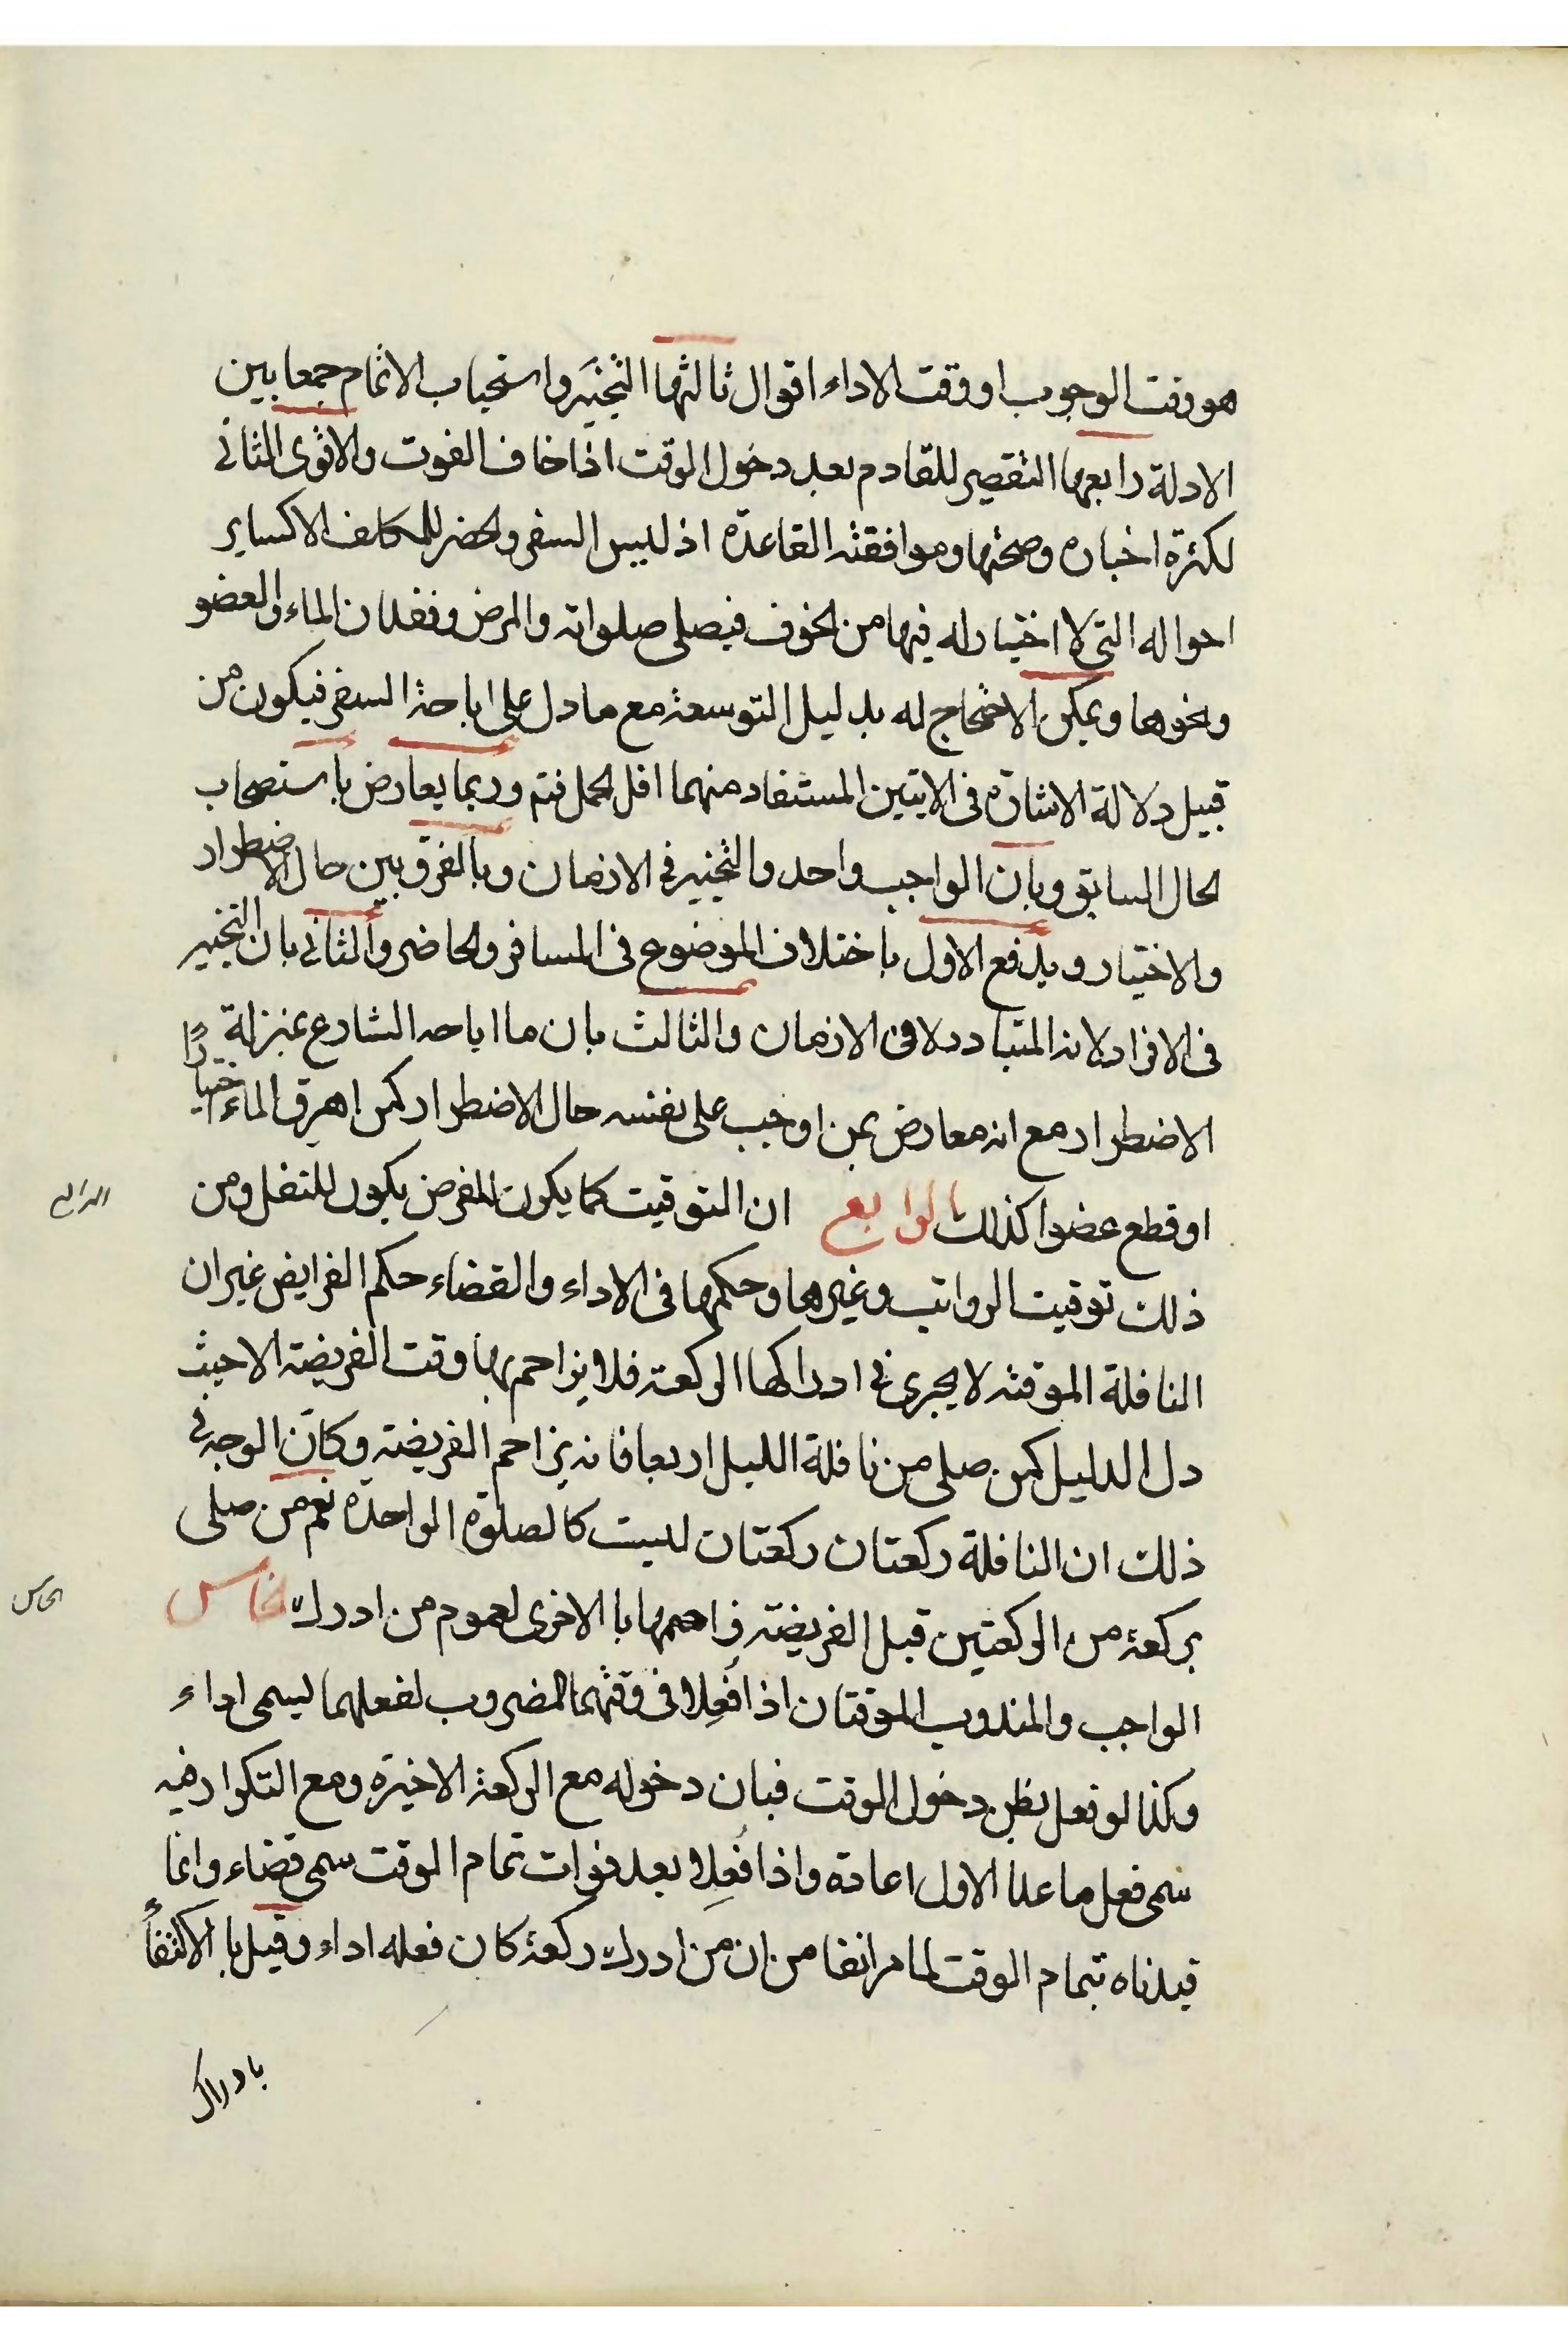 هو وقت الوجوب او وقت الاداء اقوال ثالثها التخيير واستحباب الاتمام جمعا بين
الادلة رابعها التقصير للقادم بعد دخول الوقت اذا خاف الفوت والاقوى الثاني
لكثرة اخباره وصحتها وموافقته القاعدة اذ ليس السفر والحضر للمكلف الا كساير
احواله التي لا اختيار له فيها من الخوف فيصلي صلواته والمرض وفقدان الماء والعضو
ونحوها ويمكن الاحتجاج له بدليل التوسعة مع ما دل على اباحة السفر فيكون من
قبيل دلالة الاشارة في الايتين المستفاد منهما اقل الحمل فتم وربما يعارض باستصحاب
الحال السابق وبان الواجب واحد والتخيير في الازمان وبالفرق بين حال الاضطرار
والاختيار ويدفع الاول باختلاف الموضوع في المسافر والحاضر والثاني بان التخيير
في الافراد لانه المتبادر لا في الازمان والثالث بان ما اباحه الشارع بمنزلة
الاضطرار مع انه معارض بمن اوجب على نفسه حال الاضطرار كمن اهرق الماء اختيارًا
او قطع عضوا كذلك الرابع ان التوقيت كما يكون للفرض يكون للنفل ومن
الرابع
ذلك توقيت الرواتب وغيرها وحكمها في الاداء والقضاء حكم الفرايض غير ان
النافلة الموقتة لا يجري في ادراكها الركعة فلا يزاحم بها وقت الفريضة الا حيث
دل الدليل كمن صلى من نافلة الليل اربعا فانه يزاحم الفريضة وكانّ الوجه في
ذلك ان النافلة ركعتان ركعتان ليست كالصلوة الواحدة نعم من صلى
بركعة من الركعتين قبل الفريضة زاحمها با الاخرى لعموم من ادرك الخامس
الخامس
الواجب والمندوب الموقتان اذا فُعِلا في وقتهما المضروب لفعلهما ليسمى اداء
وكذا لو فعل بظن دخول الوقت فبان دخوله مع الركعة الاخيرة ومع التكرار فيه
سمى فعل ما عدا الاول اعادة واذا فُعِلا بعد فوات تمام الوقت سمى قضاء وانما
قيدناه بتمام الوقت لما مر انفا من ان من ادرك ركعة كان فعله اداء وقيل با الاكتفاءً
بادراك